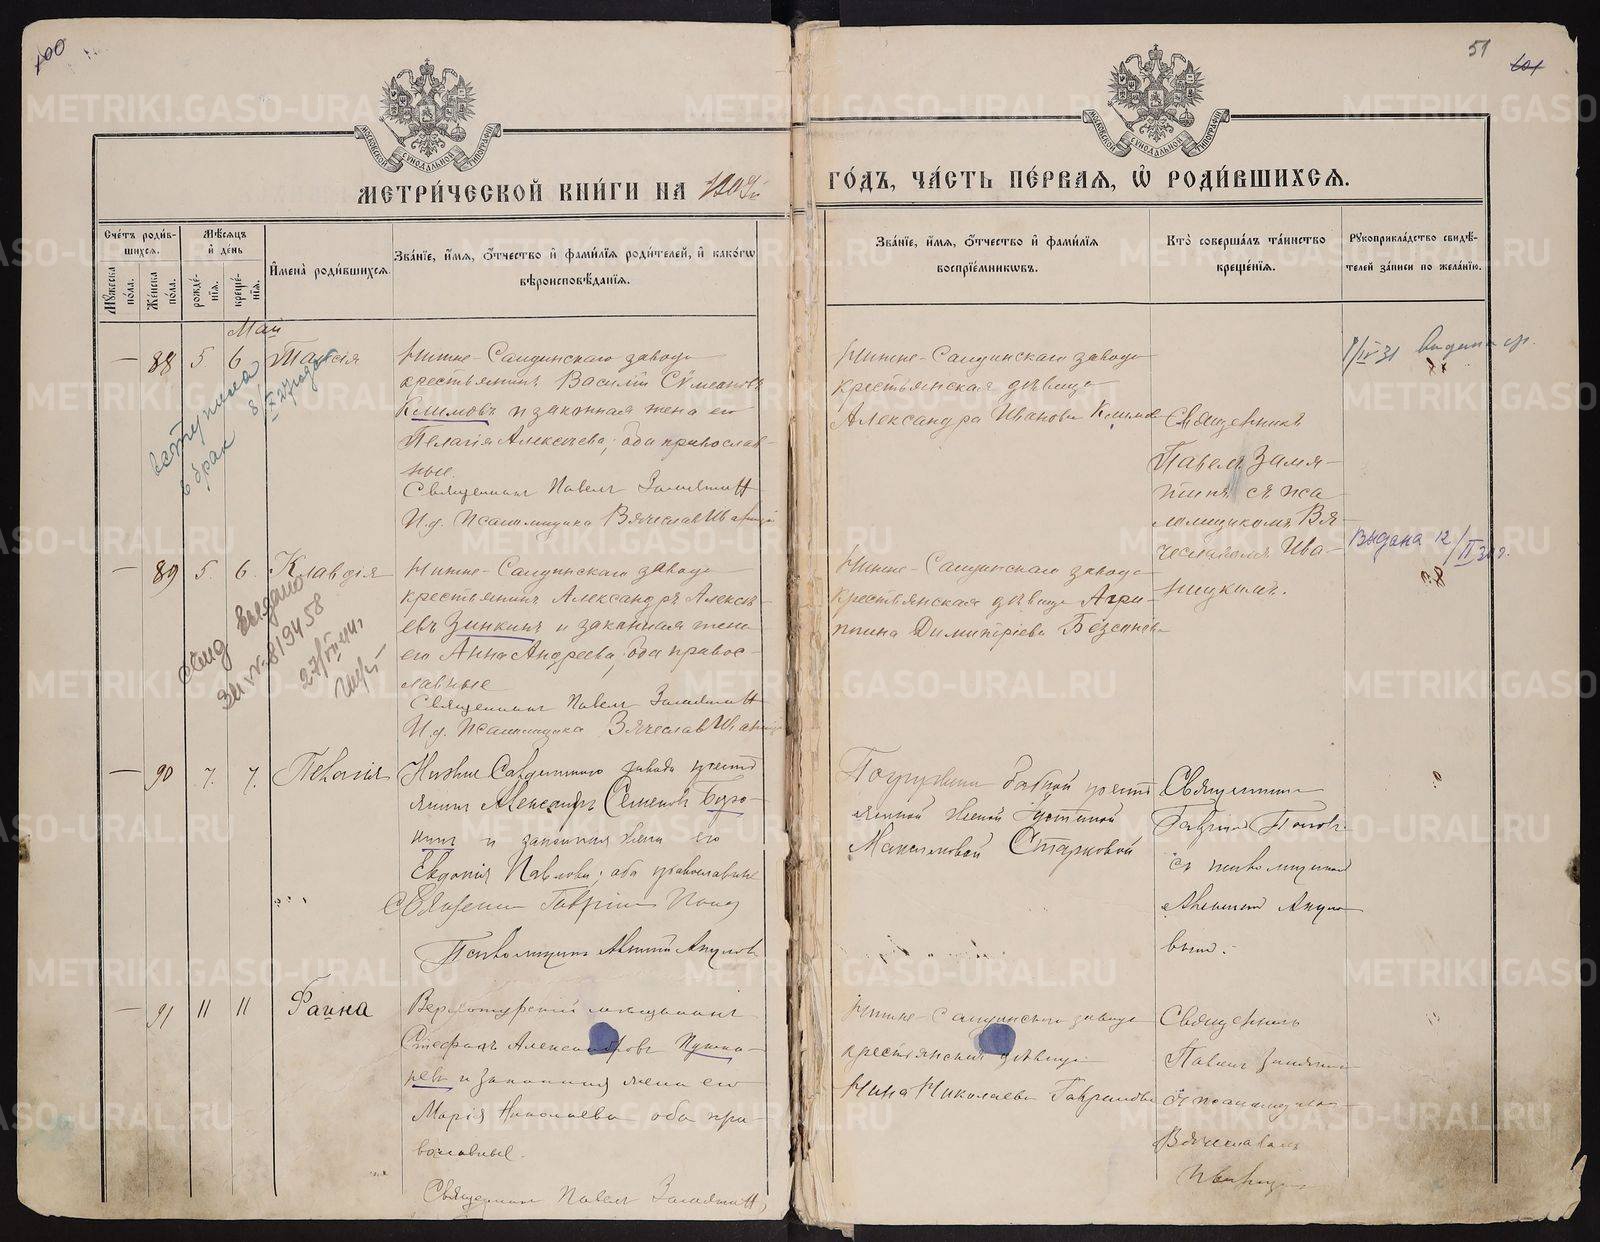 100
51
101
МЕТРИ́ЧЕСКОЙ КНИ́ГИ НА
ГО́ДЪ, ЧА́СТЬ ПЕ́РВАѦ, Ѿ РОДИ́ВШИХСѦ.
Сче́тъ роди́в-
шихсѧ.
Мꙋ́жеска по́ла.
Же́нска по́ла.
Мѣ́сѧцъ и҆ де́нь
рожде́-
нїѧ.
креще́-
нїѧ.
И҆мена̀ роди́вшихсѧ.
Зва́нїе, и҆́мѧ, ѻ҆́тчество и҆ фами́лїѧ роди́телей, и҆ како́гѡ
вѣроисповѣ́данїѧ.
Зва́нїе, и҆́мѧ, ѻ҆́тчество и҆ фами́лїѧ
воспрїе́мникѡвъ.
Кто̀ соверша́лъ та́инство
креще́нїѧ.
Рꙋкоприкла́дство свидѣ́-
телей за́писи по жела́нїю.
Май
— 88 5 6 Таисія
Нижне-Салдинскаго завода
крестьянинъ Василій Сѵмеоновъ
Климовъ и законная жена его
Пелагія Алексѣева, оба православ-
ные
Священникъ Павелъ Замятинъ
И. д. Псаломщика Вячеславъ Иваницкій
вступила
в брак
Нижне-Салдинскаго завода
крестьянская дѣвица
Александра Иванова Климова
Священникъ
Павелъ Замя-
тинъ съ пса-
ломщикомъ Вя-
чеславомъ Ива-
ницкимъ.
1/IV 31 Выдана
— 89 5. 6. Клавдія
Нижне-Салдинскаго завода
крестьянинъ Александръ Алексѣ-
евъ Зинкинъ и законная жена
его Анна Андреева, оба правос-
лавные
Священникъ Павелъ Замятинъ
И. д. Псаломщика Вячеславъ Иваницкій
Нижне-Салдинскаго завода
крестьянская дѣвица Агри-
пина Димитріева Безсонова
Выдана 12/II 30 г.
— 90 7. 7. Пелагія
Нижне Салдинскаго завода кресть
янинъ Александръ Семеновъ
и законная жена его
Евдокія Павлова, оба православные
Священникъ Гавріилъ Поповъ
Псаломщикъ Акуловъ
кресть
янской женой Устиньей
Максимовой Старковой
Священникъ
Гавріилъ Поповъ
съ псаломщикомъ
Акуло
вымъ.
— 91 11 11 Фаина
Верхотурскій мѣщанинъ
Стефанъ Александровъ Пушка-
ревъ и законная жена его
Марія Николаева оба пра-
вославные.
Священникъ Павелъ Замятинъ
Нижне-Салдинскаго завода
крестьянская дѣвица
Нина Николаева Гаврилова
Священникъ
Павелъ Замятинъ
съ псаломщикомъ
Вячеславомъ
Иваницкимъ
METRIKI.GASO-URAL.RU